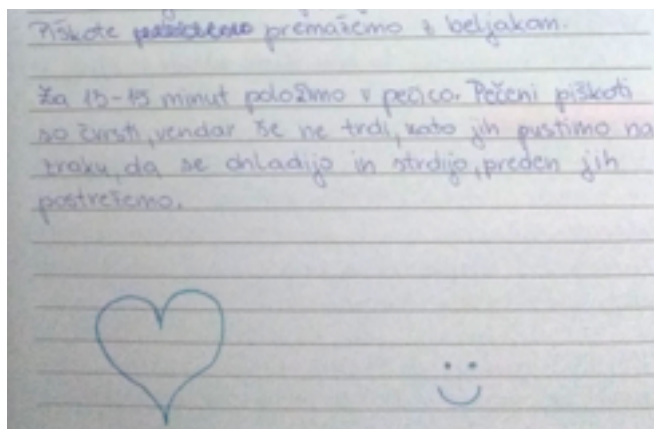 Piškote premažemo z beljakom.
Za 13-15 minut položimo v pečico. Pečeni piškoti
so čvrsti, vendar še ne trdi, zato jih pustimo na
zraku, da se ohladijo in strdijo, preden jih
postrežemo.